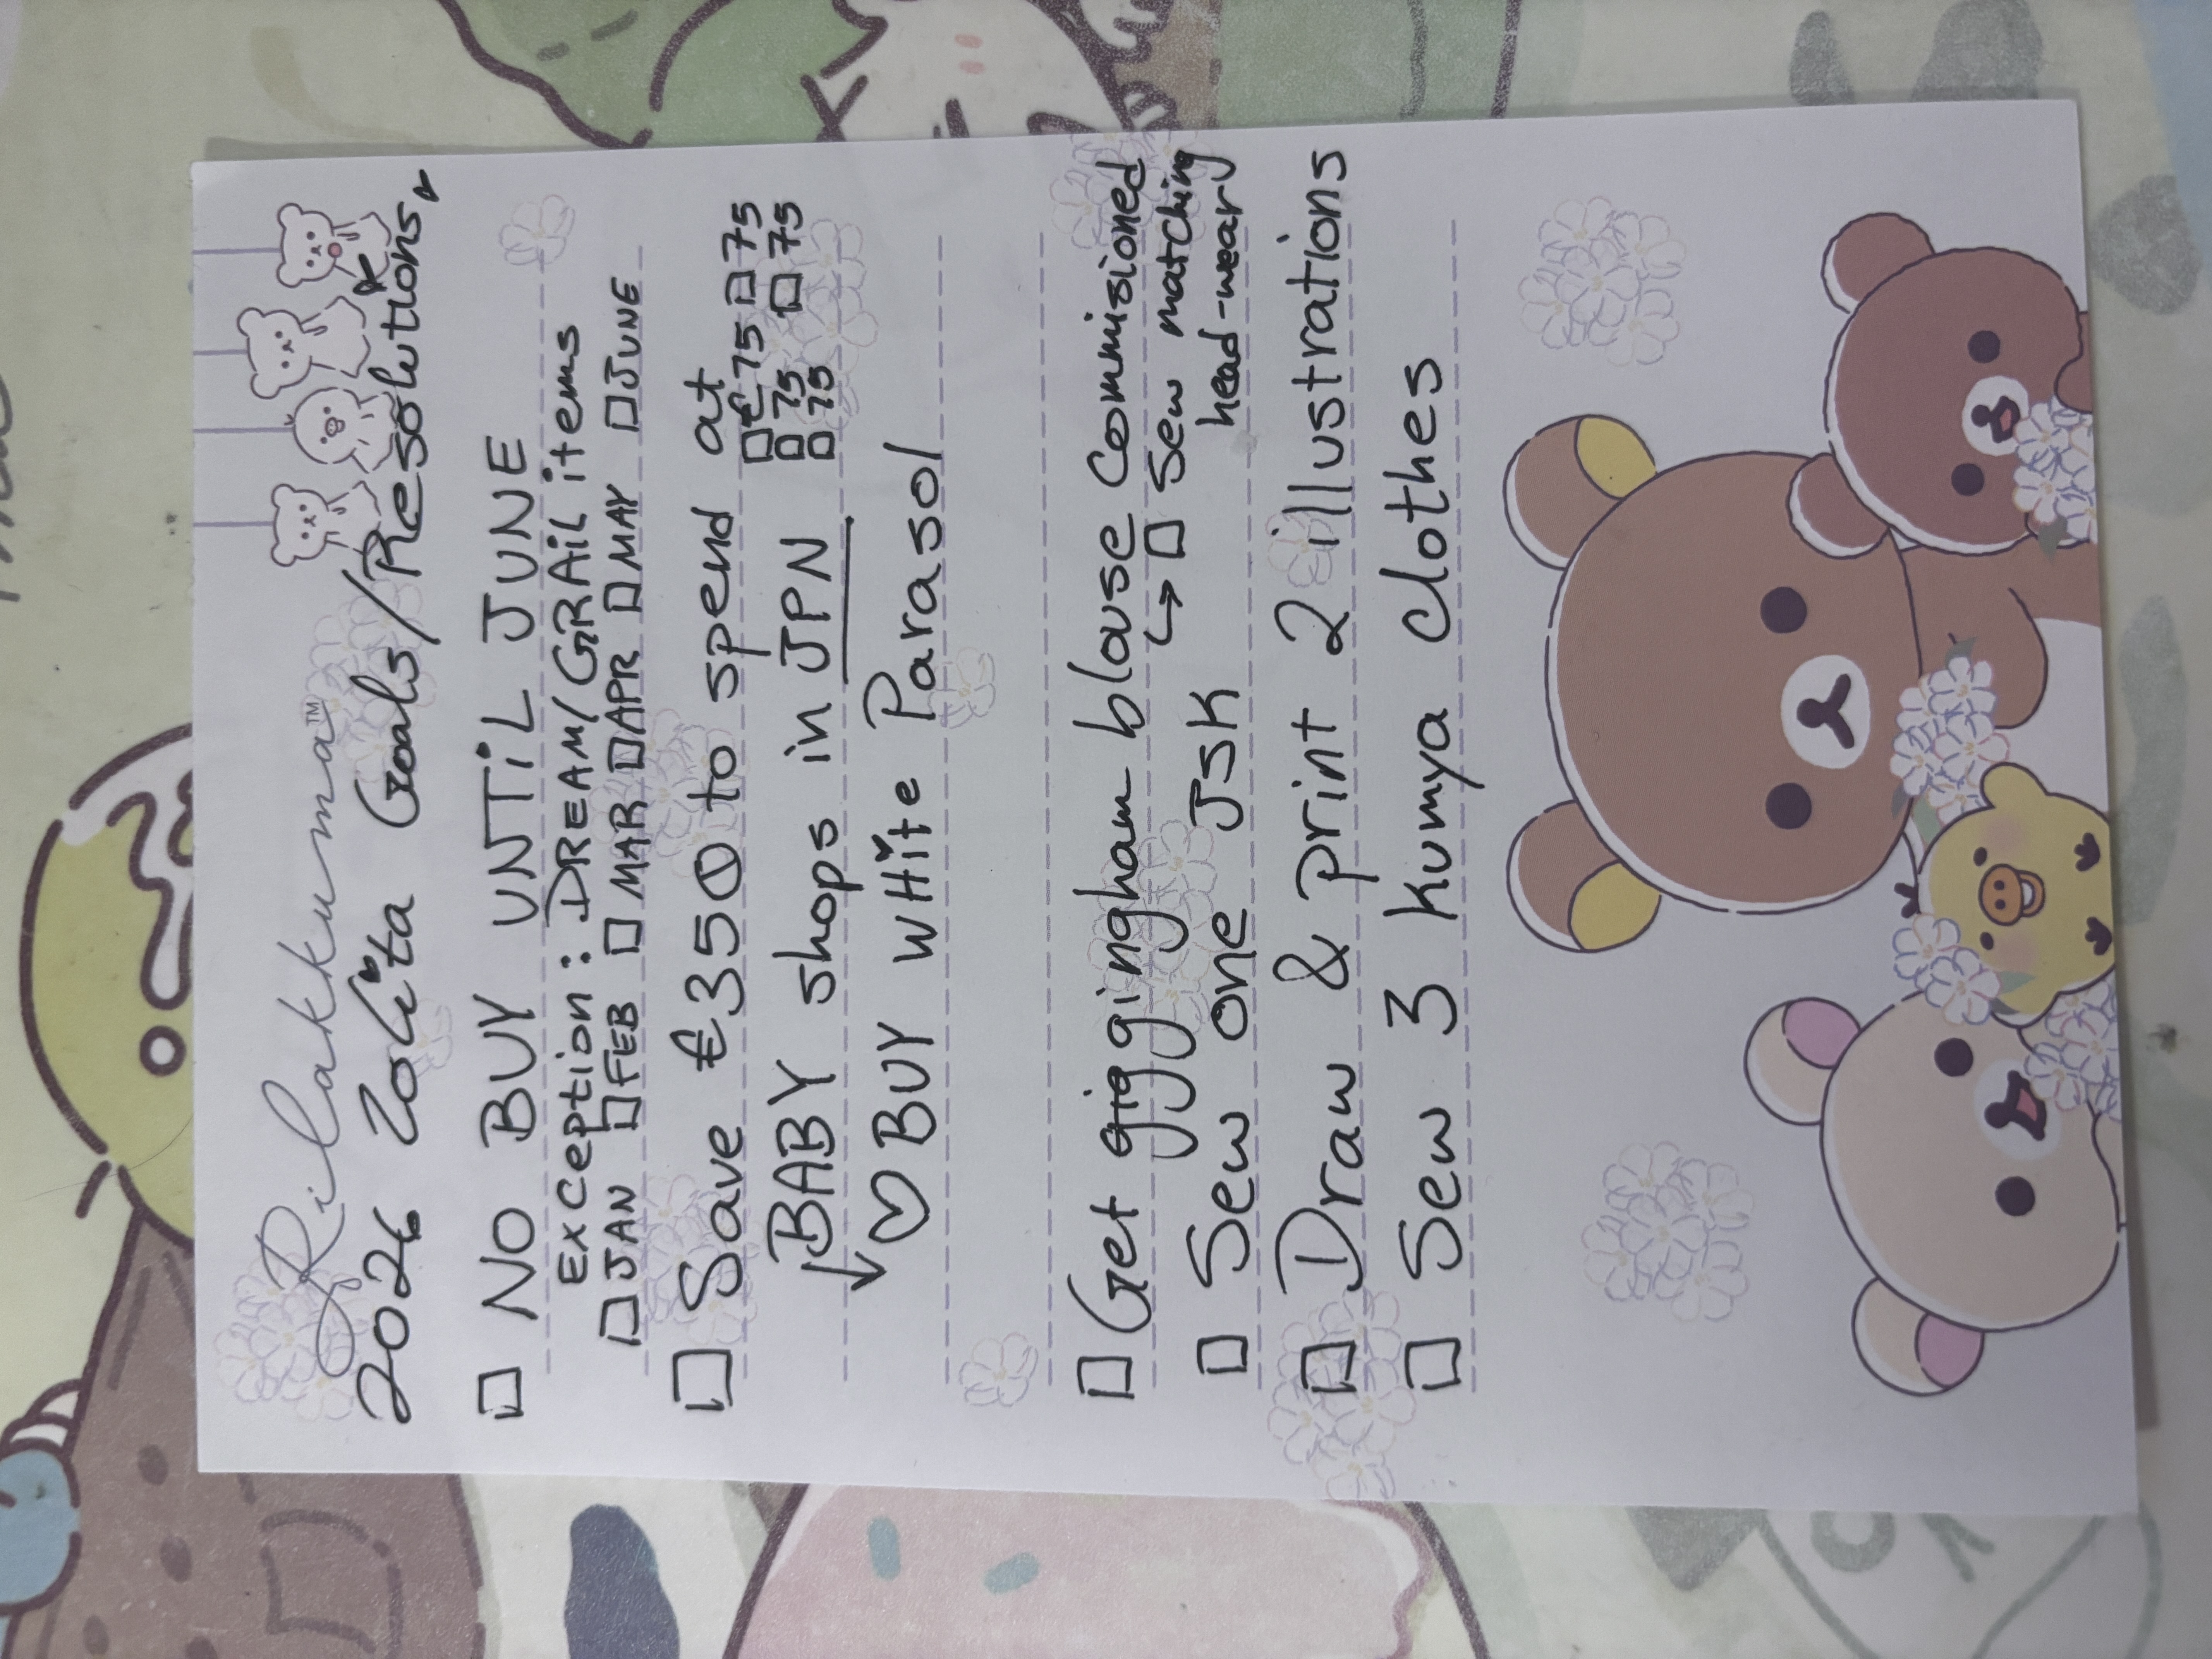 Rilakkuma™
2026 Lolita Goals/Resolutions
☐ NO BUY UNTIL JUNE
Exception: DREAM/GRAIL items
☐ JAN ☐ FEB ☐ MAR ☐ APR ☐ MAY ☐ JUNE
☐ Save €350 to spend at
☐ € 75 ☐ 75
☐ 75 ☐ 75
☐ 75
BABY shops in JPN
↓
♡ BUY WHITE Parasol
☐ Get gig gingham blouse Commisioned
↳ ☐ Sew matching
head-wear
☐ Sew one JSK
☐ Draw & print 2 illustrations
☐ Sew 3 kumya clothes